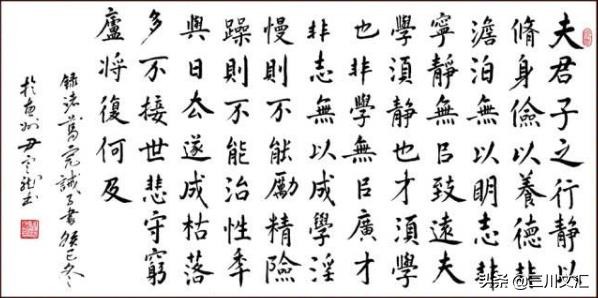 夫君子之行靜以
脩身儉以養德非
澹泊無以明志非
寧靜無㠯致遠夫
學須靜也才須學
也非學無㠯廣才
非志無以成學淫
慢則不能勵精險
躁則不能治性秊
與日去遂成枯落
多不接世悲守窮
廬將復何及
錄諸葛亮誡子書癸巳冬
於州尹書
头条 @三川文汇